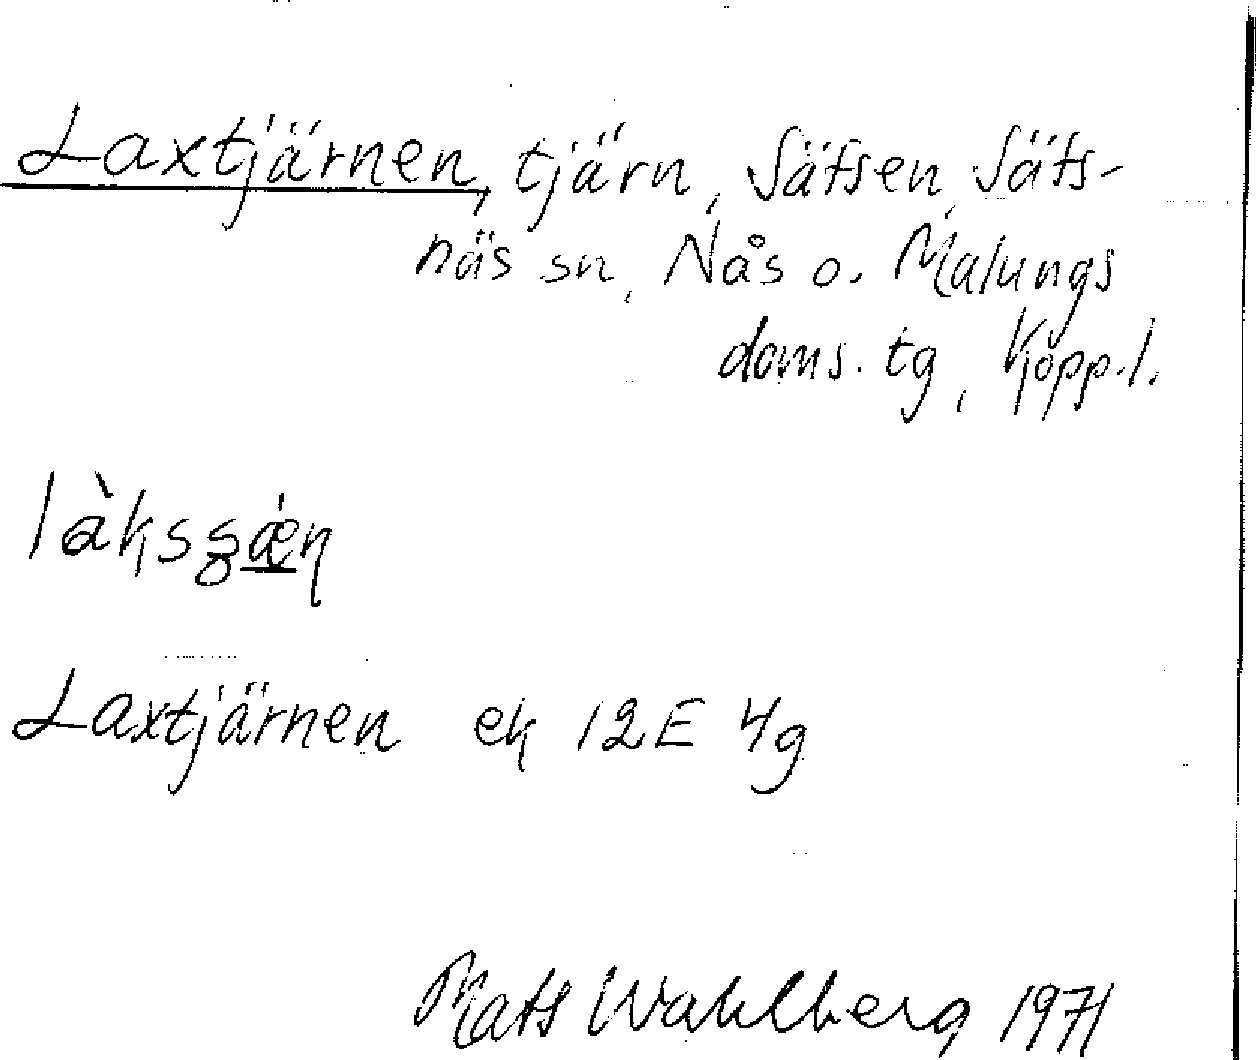 Laxtjärnen, tjärn, Säfsen, Säfs-
näs sn, Nås o. Malungs
doms. tg, Kopp. l.
Laxtjärnen ek 12E 4g
Mats Wahlberg 1971